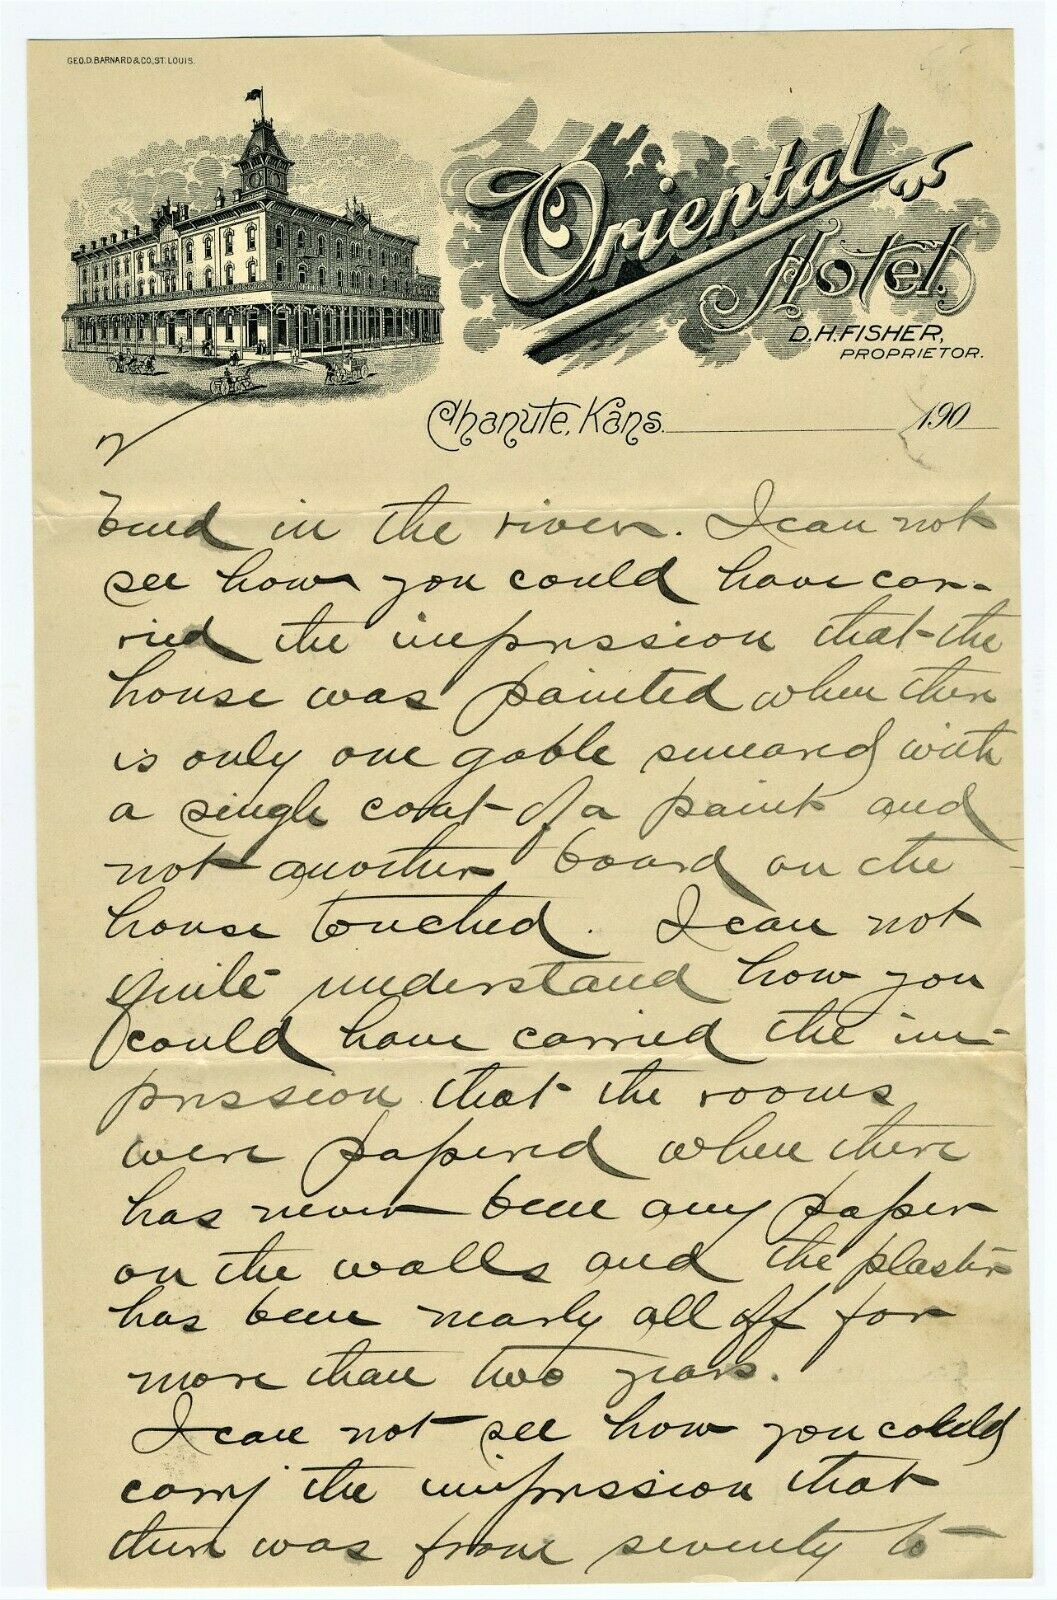 GEO. D. BARNARD & CO, ST. LOUIS.
Oriental
Hotel.
D. H. FISHER,
PROPRIETOR.
Chanute, Kans. 190
2
bend in the river. I can not
see how you could have car-
ried the impression that the
house was painted when there
is only one gable smeared with
a single coat of a paint and
not another board on the
house touched. I can not
quite understand how you
could have carried the im-
pression that the rooms
were papered when there
has never been any paper
on the walls and the plaster
has been nearly all off for
more than two years.
I can not see how you could
carry the impression that
there was from seventy to